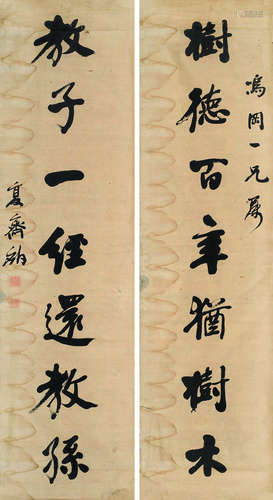 鳴岡一兄屬
樹德百年猶樹木
教子一經還教孫
夏齊